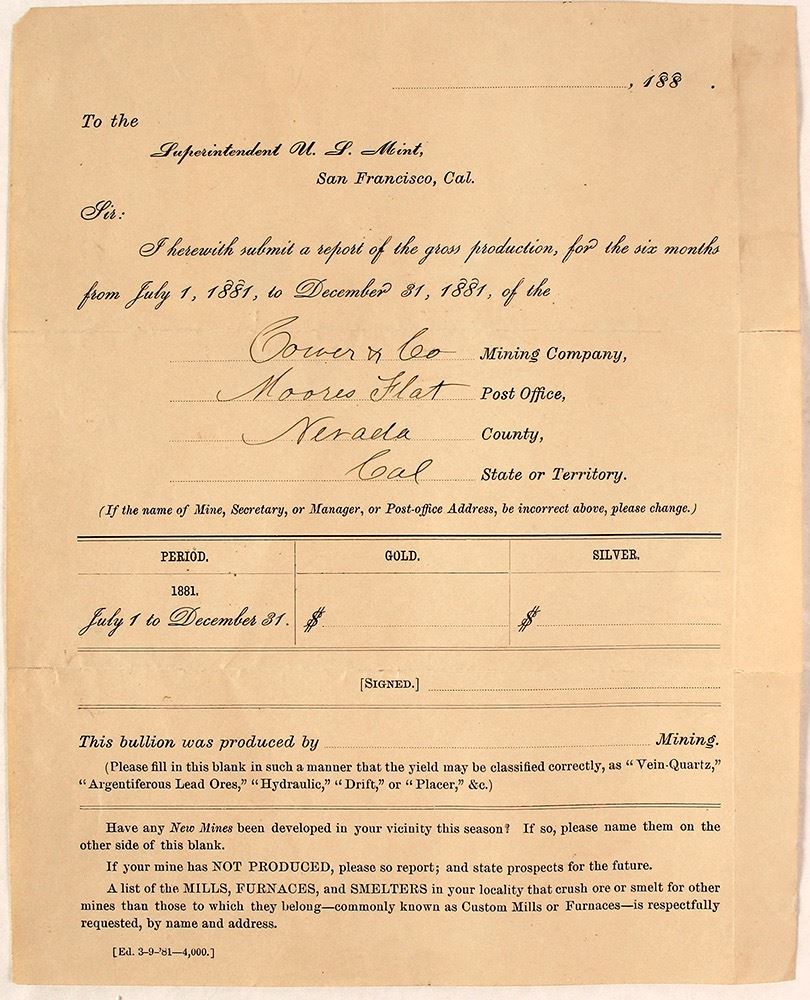 , 188 .
To the
Superintendent U. S. Mint,
San Francisco, Cal.
Sir:
I herewith submit a report of the gross production, for the six months
from July 1, 1881, to December 31, 1881, of the
Cower & Co Mining Company,
Moores Flat Post Office,
Nevada County,
Cal State or Territory.
(If the name of Mine, Secretary, or Manager, or Post-office Address, be incorrect above, please change.)
PERIOD. GOLD. SILVER.
1881.
July 1 to December 31. $ $
[SIGNED.]
This bullion was produced by Mining.
(Please fill in this blank in such a manner that the yield may be classified correctly, as "Vein-Quartz,"
"Argentiferous Lead Ores," "Hydraulic," "Drift," or "Placer," &c.)
Have any New Mines been developed in your vicinity this season? If so, please name them on the
other side of this blank.
If your mine has NOT PRODUCED, please so report; and state prospects for the future.
A list of the MILLS, FURNACES, and SMELTERS in your locality that crush ore or smelt for other
mines than those to which they belong—commonly known as Custom Mills or Furnaces—is respectfully
requested, by name and address.
[Ed. 3-9-'81—4,000.]